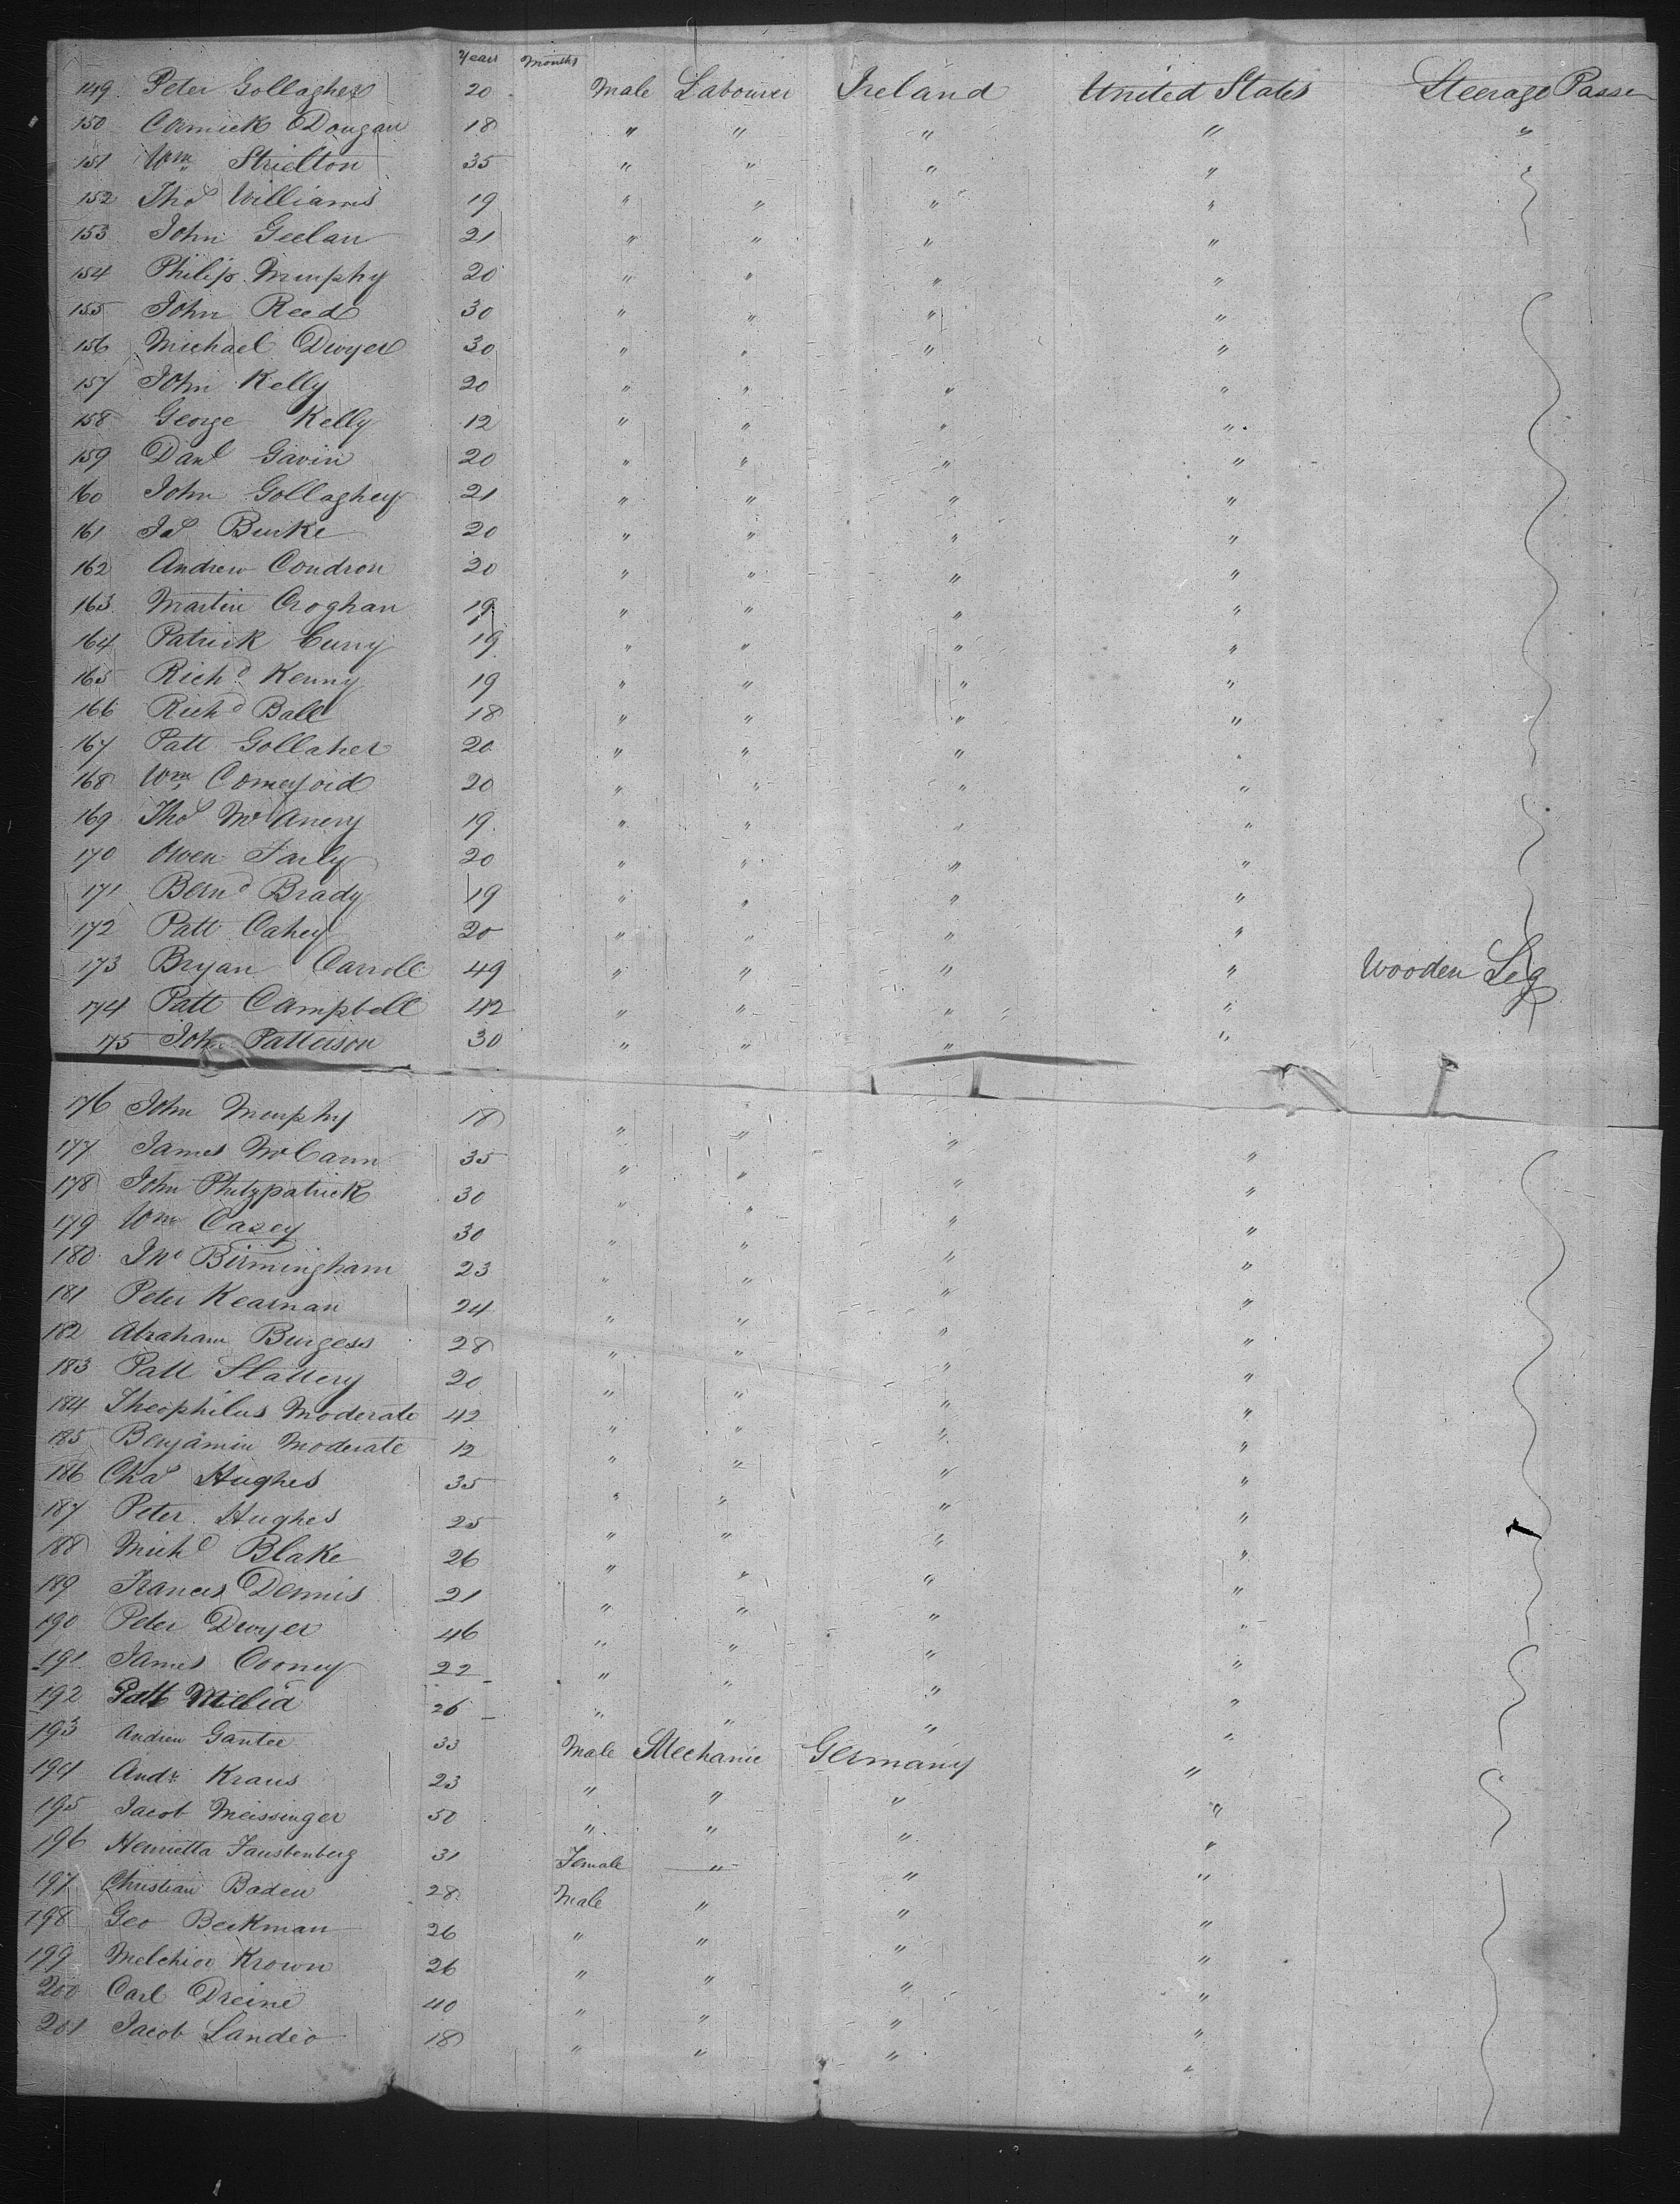 Years Months
149 Peter Gollagher 20 Male Labourer Ireland United States Steerage Passe
150 Cormick ODougan 18 " " " " "
151 Wm Strielton 35 " " " "
152 Thos Williams 19 " " " "
153 John Geelan 21 " " " "
154 Philip Murphy 20 " " " "
155 John Reed 30 " " " "
156 Michael Dwyer 30 " " " "
157 John Kelly 20 " " " "
158 George Kelly 12 " " " "
159 Danl Gavin 20 " " " "
160 John Gollaghey 21 " " " "
161 Jas Burke 20 " " " "
162 Andrew Condron 20 " " " "
163 Martin Croghan 19 " " " "
164 Patrick Curry 19 " " " "
165 Richd Kenny 19 " " " "
166 Richd Ball 18 " " " "
167 Patt Gollaher 20 " " " "
168 Wm Comerford 20 " " " "
169 Thos McAnery 19 " " " "
170 Owen Farly 20 " " " "
171 Bernd Brady 19 " " " "
172 Patt Cahey 20 " " " "
173 Bryan Carroll 49 " " " " Wooden Leg
174 Patt Campbell 42 " " " "
175 John Patterson 30 " " " "
176 John Murphy 18 " " " "
177 James McCann 35 " " " "
178 John Phitzpatrick 30 " " " "
179 Wm Casey 30 " " " "
180 Jno Birmingham 23 " " " "
181 Peter Kearnan 24 " " " "
182 Abraham Burgess 28 " " " "
183 Patt Slattery 20 " " " "
184 Theophilus Moderate 42 " " " "
185 Benjamin Moderate 12 " " " "
186 Chas Hughes 35 " " " "
187 Peter Hughes 25 " " " "
188 Michd Blake 26 " " " "
189 Frances Dennis 21 " " " "
190 Peter Dwyer 46 " " " "
191 James Cooney 22 " " " "
192 Patt Melia 26 " " " "
193 Andrew Gantee 33 Male Mechanic Germany "
194 Andr Kraus 23 " " " "
195 Jacob Meissinger 50 " " " "
196 Henrietta Faustenberg 31 Female " " "
197 Christian Baden 28 Male " " "
198 Geo Beckman 26 " " " "
199 Melchior Krown 26 " " " "
200 Carl Dreine 40 " " " "
201 Jacob Landeo 18 " " " "